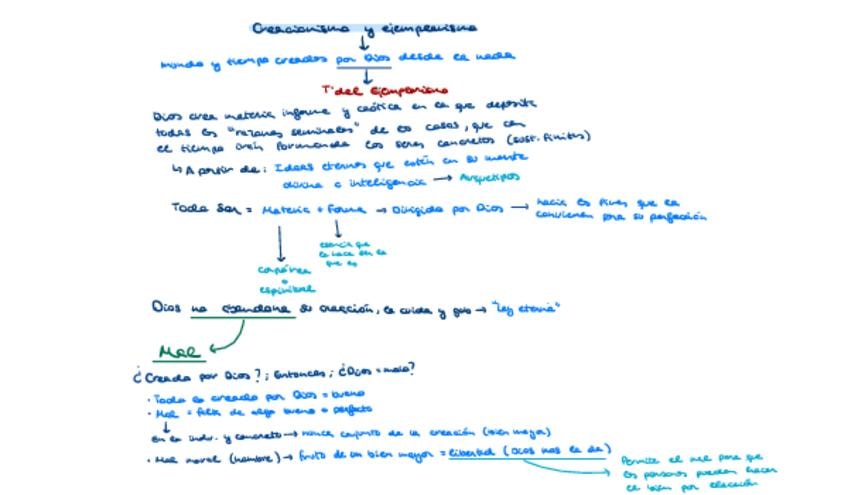 Creacionismo y ejemplarismo
mundo y tiempo creados por Dios desde la nada
Tª del ejemplarismo
Dios crea materia informe y caótica en la que deposita
todas las "razones seminales" de las cosas, que con
el tiempo irán formando los seres concretos (sust. finitas)
↳ A partir de: Ideas eternas que están en su mente
divina o inteligencia → Arquetipos
Todo ser = Materia + Forma → Dirigido por Dios → hacia los fines que le
convienen para su perfección
esencia que
le hace ser lo
que es
corpórea
o
espiritual
Dios no abandona su creación, la cuida y guía → "ley eterna"
Mal
¿Creado por Dios?; Entonces; ¿Dios = malo?
· Todo lo creado por Dios = bueno
· Mal = falta de algo bueno o perfecto
en lo indv. y concreto → nunca conjunto de la creación (bien mayor)
· Mal moral (hombre) → fruto de un bien mayor = libertad (Dios nos la da)
Permite el mal para que
las personas puedan hacer
el bien por elección